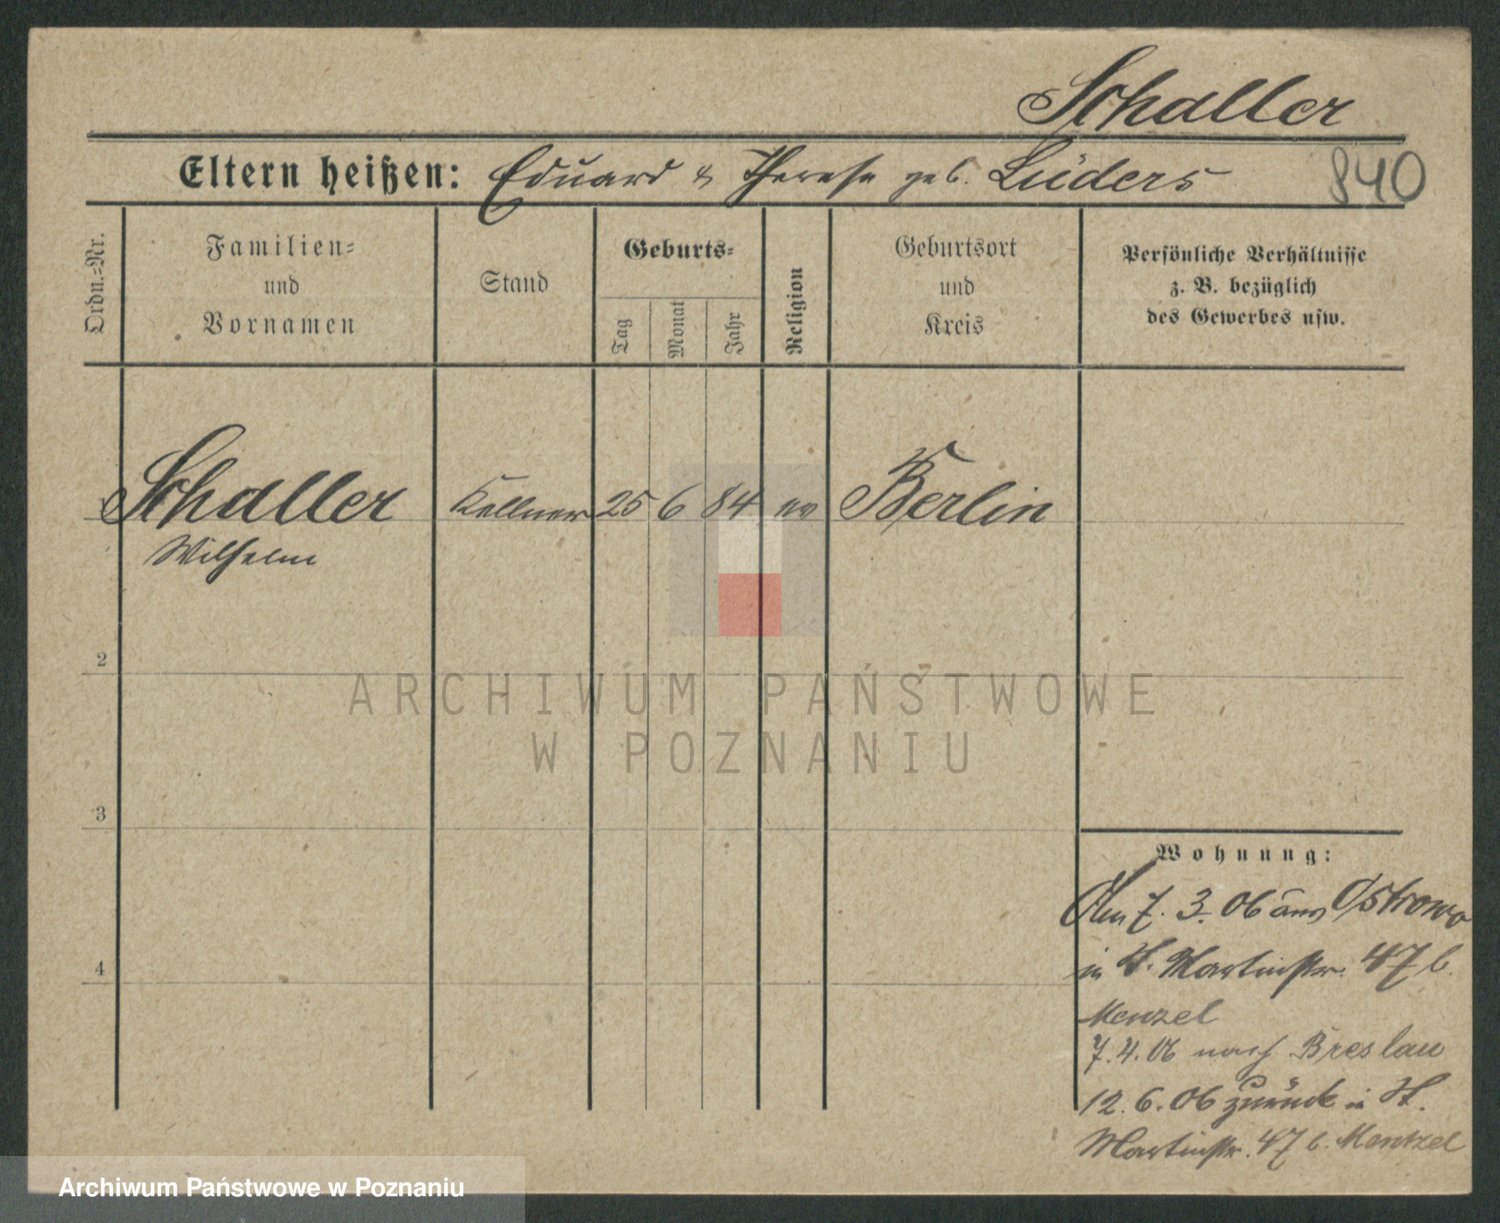 Schaller
Eltern heißen: Eduard & Therese geb. Lüders
840
Ordn.-Nr.
Familien-
und
Vornamen
Stand
Geburts-
Tag
Monat
Jahr
Religion
Geburtsort
und
Kreis
Persönliche Verhältnisse
z. B. bezüglich
des Gewerbes usw.
Schaller Kellner 25 6 84 ev Berlin
Wilhelm
2
3
4
ARCHIWUM PAŃSTWOWE
W POZNANIU
Wohnung:
7. 3. 06 aus Ostrowo
in St. Martinstr. 47 b.
Menzel
7.4.06 nach Breslau
12.6.06 zurück in St.
Martinstr. 47 b. Mentzel
Archiwum Państwowe w Poznaniu